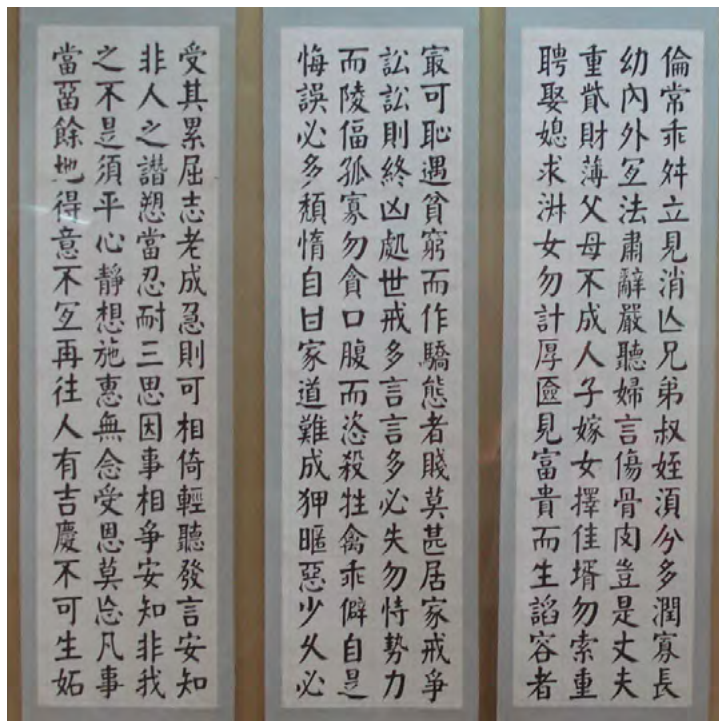 倫常乖舛立見消亾兄弟叔姪湏分多潤寡長
幼內外冝法肅辭嚴聽婦言傷骨肉豈是丈夫
重貲財薄父母不成人子嫁女擇佳壻勿索重
聘娶媳求淋女勿計厚匳見富貴而生謟容者
㝡可恥遇貧窮而作驕態者賤莫甚居家戒爭
訟訟則終凶處世戒多言言多必失勿恃勢力
而陵偪孤寡勿貪口腹而恣殺牲禽乖僻自是
悔誤必多頹惰自甘家道難成狎暱惡少久必
受其累屈志老成急則可相倚輕聽發言安知
非人之譖愬當忍耐三思因事相爭安知非我
之不是須平心靜想施惠無念受恩莫忘凡事
當畱餘地得意不冝再往人有吉慶不可生妬